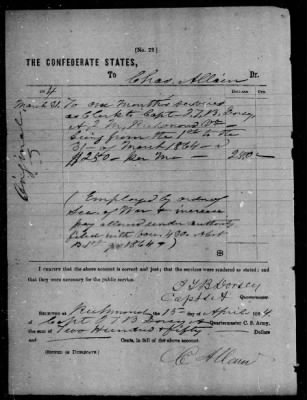 [No. 22]
THE CONFEDERATE STATES,
To Chas. Allain Dr.
DOLLARS CTS.
1864
March 31. To one month's services
as Clerk to Capt. T.T.B. Dorsey
A.Q.M. Richmond Va
being from the 1st to the
31st of March 1864
$250 per Mo 250
Original
(Employed by order of
Sec. of War & increase
pay allowed under authority
filed with vou. 430
1st 1864)
I CERTIFY that the above account is correct and just; that the services were rendered as stated; and
that they were necessary for the public service.
Capt &
Quartermaster.
RECEIVED at Richmond 15 of April 1864,
of Capt Quartermaster C. S. Army,
the sum of Two Hundred & fifty Dollars
and Cents, in full of the above account.
(SIGNED IN DUPLICATE.)
C Allain